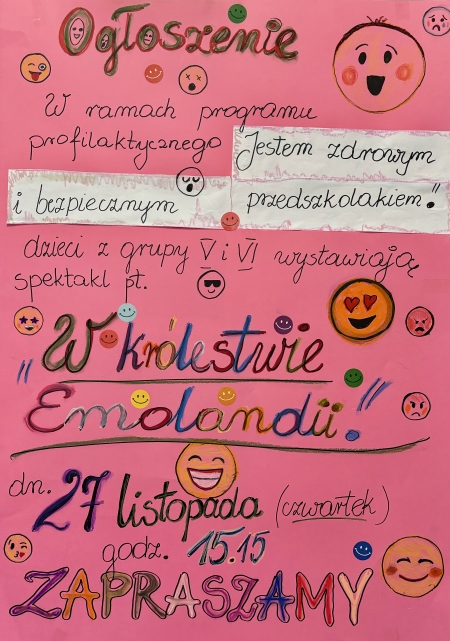 Ogłoszenie
W ramach programu
profilaktycznego Jestem zdrowym
i bezpiecznym przedszkolakiem."
dzieci z grupy V i VI wystawiają
spektakl pt.
"W królestwie
Emolandii."
dn. 27 listopada (czwartek)
godz. 15.15
ZAPRASZAMY